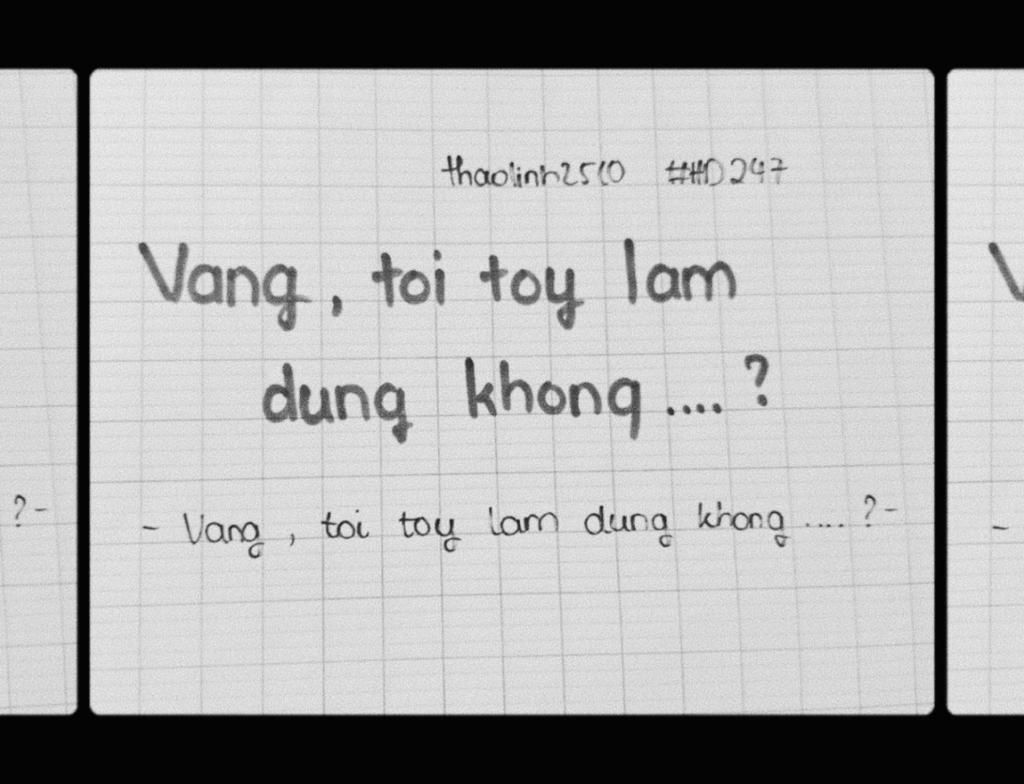 thaolinh2510 ##HD247
Vang, toi toy lam
dung khong....?
- Vang, toi toy lam dung khong....?-
?-
V
-